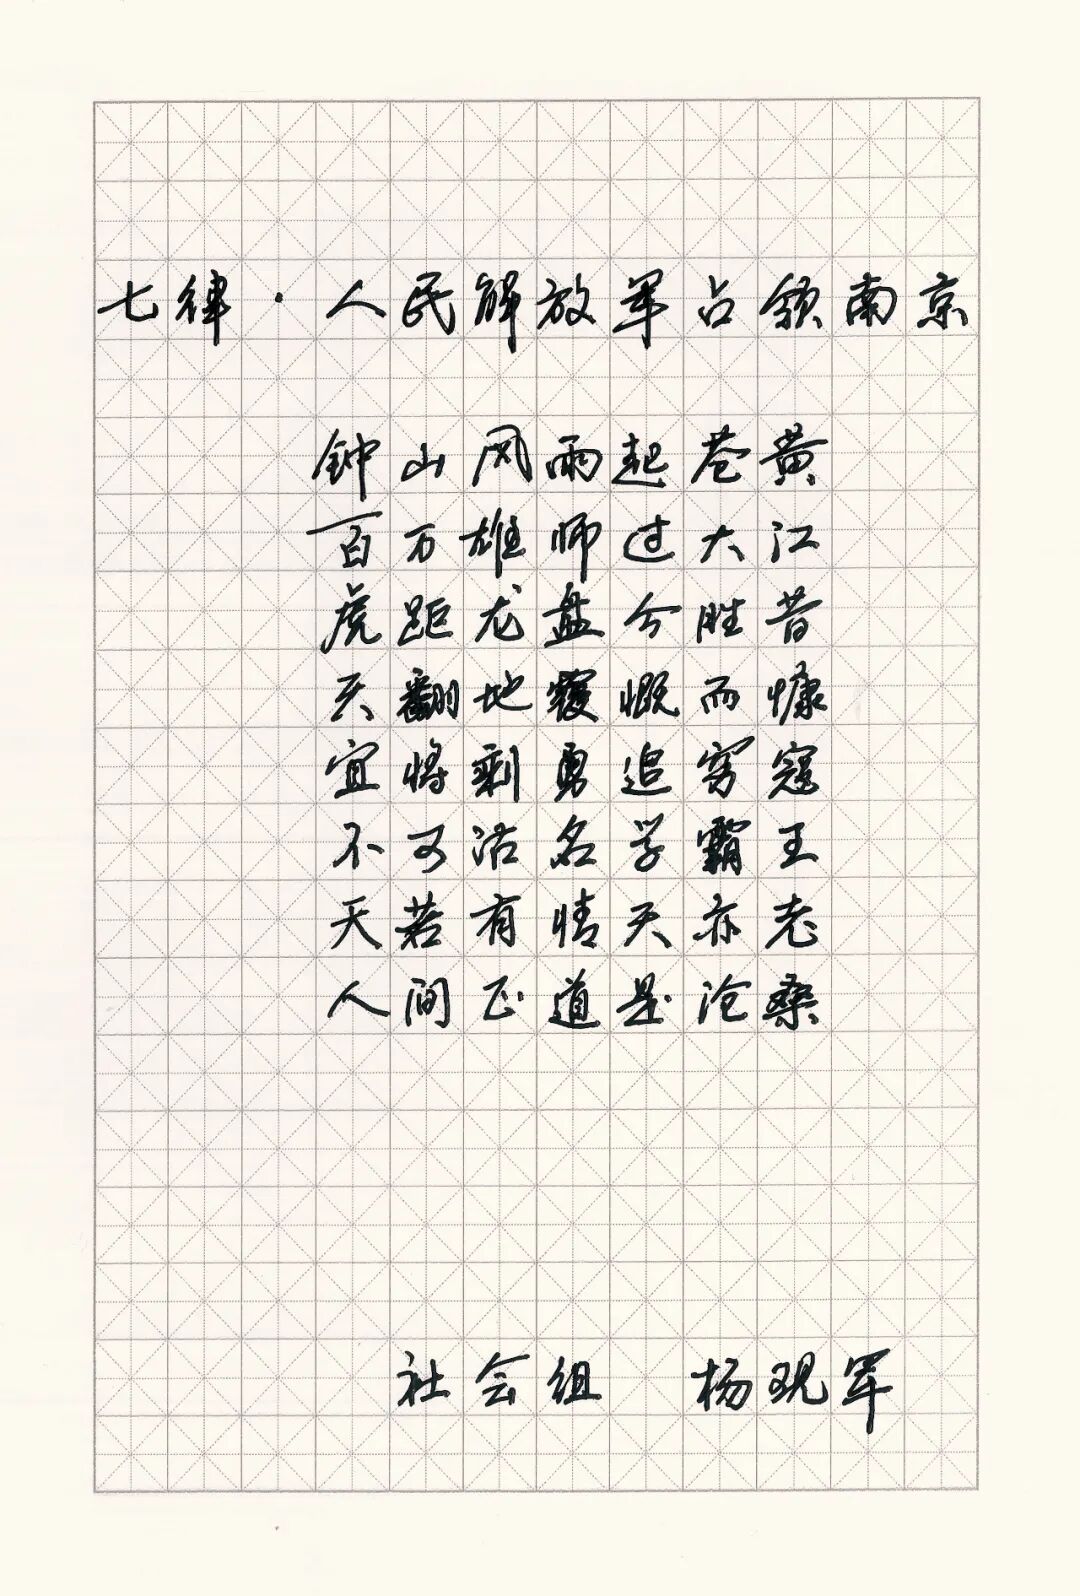 七律·人民解放军占领南京
钟山风雨起苍黄
百万雄师过大江
虎距龙盘今胜昔
天翻地覆慨而慷
宜将剩勇追穷寇
不可沽名学霸王
天若有情天亦老
人间正道是沧桑
社会组 杨观军